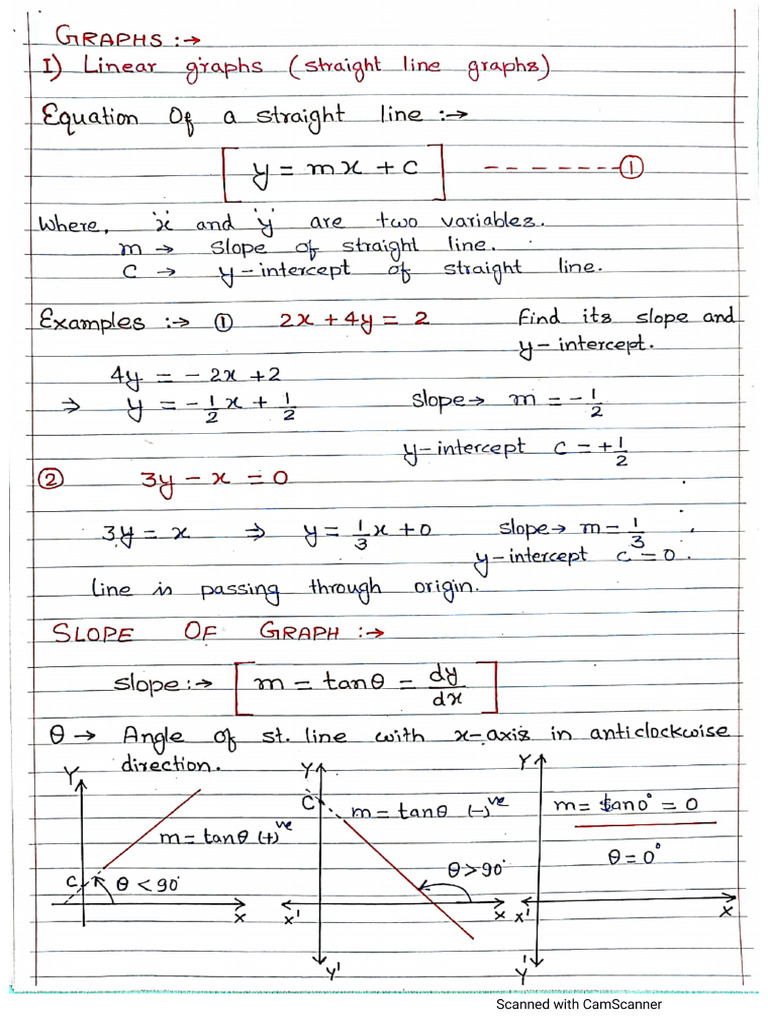 GRAPHS :→
I) Linear graphs (straight line graphs)
Equation Of a straight line :→
[ y = mx + c ] ------- ①
Where, 'x' and 'y' are two variables.
m → slope of straight line.
C → y-intercept of straight line.
Examples :→ ① 2x + 4y = 2 Find its slope and
y-intercept.
4y = -2x + 2
⇒ y = -1/2 x + 1/2 slope → m = -1/2
y-intercept c = +1/2
② 3y - x = 0
3y = x ⇒ y = 1/3 x + 0 slope → m = 1/3
y-intercept c = 0.
Line is passing through origin.
SLOPE OF GRAPH :→
slope :→ [ m = tanθ = dy/dx ]
θ → Angle of st. line with x-axis in anticlockwise
direction.
Y
m = tanθ (+)ve
C
θ < 90°
X
Y
C
m = tanθ (-)ve
θ > 90°
X'
X
Y'
Y
m = tan0° = 0
θ = 0°
X'
X
Y'
Scanned with CamScanner